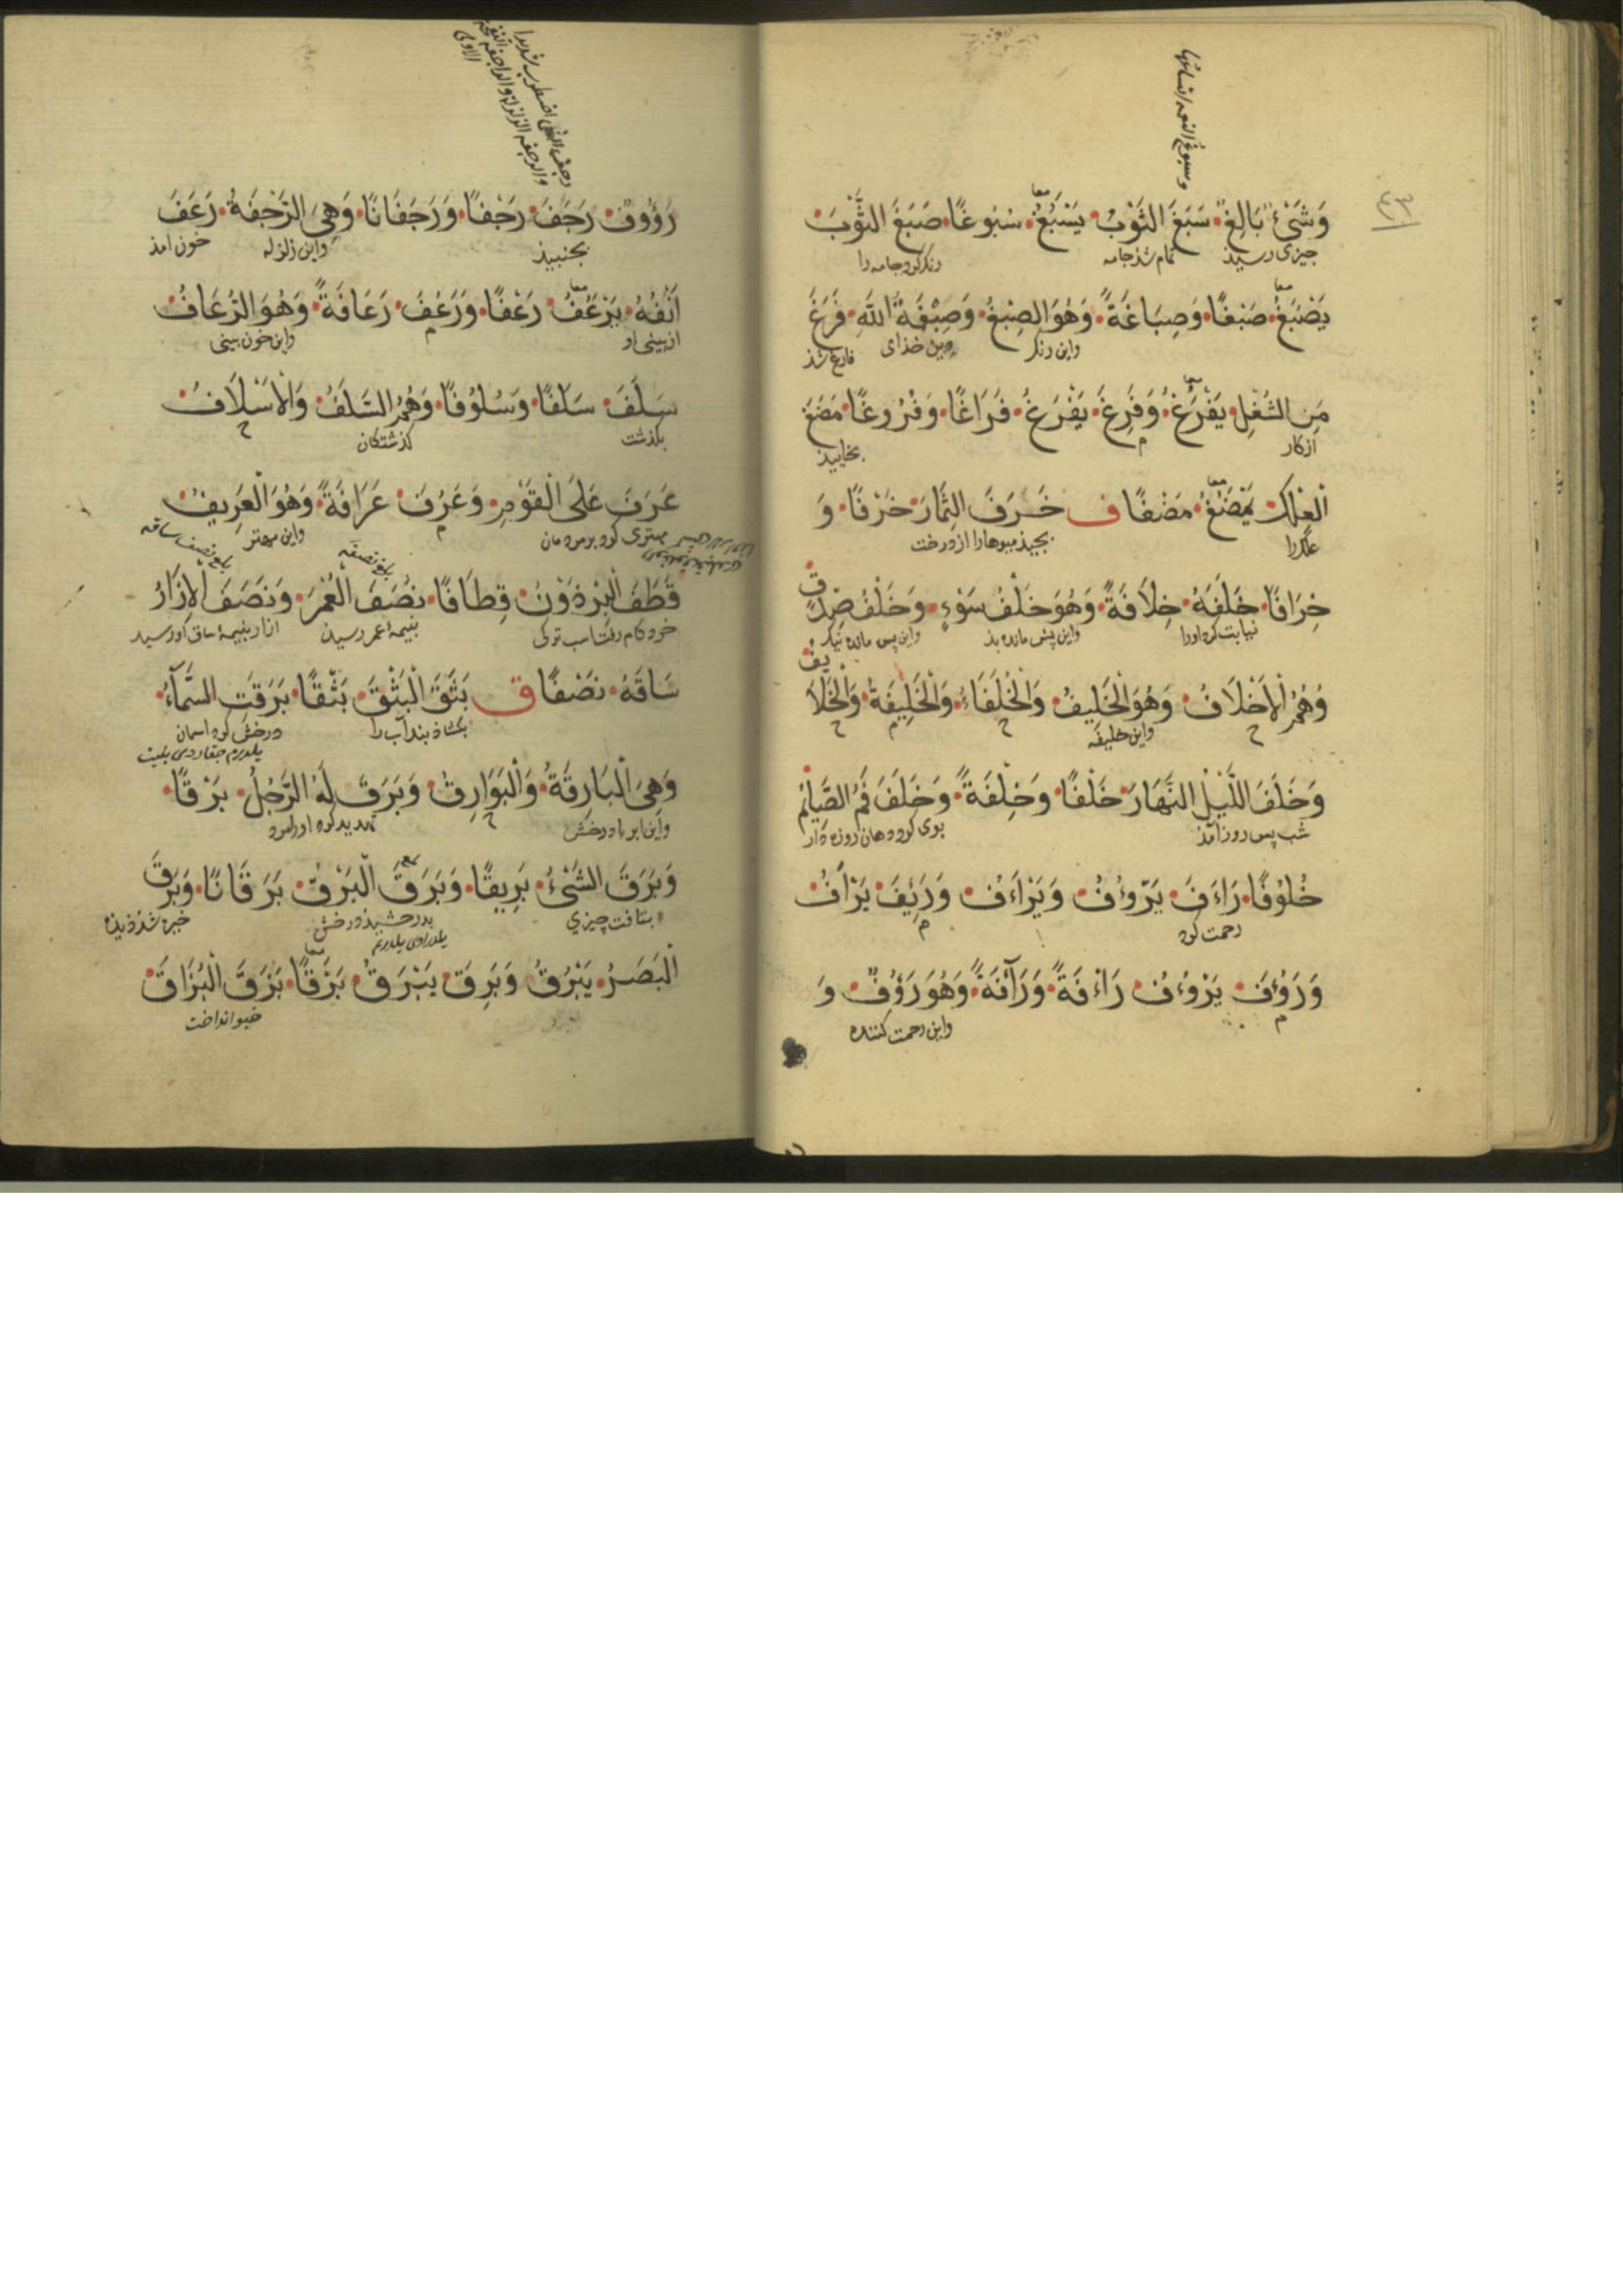 ٤٣
وَشَيْءٌ بَالِغٌ سَبَغَ الثَّوْبُ يَسْبُغُ سُبُوغًا صَبَغَ الثَّوْبَ
چیزی رسیذ تمام شذ جامه رنک کرد جامه را
يَصْبَغُ صَبْغًا وَصِبَاغَةً وَهُوَ الصِّبْغُ وَصِبْغَةُ اللَّهِ فَرَغَ
واین رنک دین خذای فارغ شذ
مِنَ الشُّغْلِ يَفْرُغُ وَفَرِغَ يَفْرَغُ فَرَاغًا وَفُرُوغًا مَضَغَ
ازکار بخاییذ
الْعِلْكَ يَمْضَغُ مَضْغًا ف خَرَفَ الثِّمَارَ خَرْفًا وَ
علک را بچیذ میوهارا از درخت
خِرَافًا خَلَفَهُ خِلَافَةً وَهُوَ خَلْفُ سَوْءٍ وَخَلَفُ صِدْقٍ
نیابت کرد اورا واین پس مانده بذ واین پس مانده نیک
وَهُمُ الْأَخْلَافُ وَهُوَ الْخَلِيفُ وَالْخُلَفَاءُ وَالْخَلِيفَةُ وَالْخَلَايِفُ
واین خلیفه
وَخَلَفَ اللَّيْلُ النَّهَارَ خَلْفًا وَخِلْفَةً وَخَلَفَ فَمُ الصَّائِمِ
شب پس روز آمذ بوی کرد دهان روزه دار
خُلُوفًا رَاءَفَ يَرْوُفُ وَيَرْاَءَفُ وَرَئِفَ يَرْاَفُ
رحمت کرد
وَرَؤُفَ يَرْوُءُفُ رَاْءفَةً وَرَآفَةً وَهُوَ رَؤُفٌ وَ
واین رحمت کننده
رَؤُوفٌ رَجَفَ رَجْفًا وَرَجَفَانًا وَهِيَ الرَّجْفَةُ رَعَفَ
بجنبیذ واین زلزله خون آمذ
اَنْفُهُ يَرْعَفُ رَعْفًا وَرَعُفَ رَعَافَةً وَهُوَ الرُّعَافُ
از بینی او واین خون بینی
سَلَفَ سَلَفًا وَسُلُوفًا وَهُمُ السَّلَفُ وَالْأَسْلَافُ
بکذشت کذشتکان
عَرَفَ عَلَى الْقَوْمِ وَعَرُفَ عَرَافَةً وَهُوَ الْعَرِيفُ
مهتری کرد بر مردمان واین مهتر
قَطَفَ الْبِرْذَوْنُ قِطَافًا نَصَفَ الْعُمْرَ وَنَصَفَ الْإِزَارُ
خرد کام رفت اسب ترکی بنیمهٔ عمر رسیذ ازار بنیمهٔ ساق او رسید
سَاقَهُ نَصْفًا ق بَثَقَ الْبَثْقَ بَثْقًا بَرَقَتِ السَّمَاءُ
بکشاذ بند آب را درخش کرد اسمان
وَهِيَ الْبَارِقَةُ وَالْبَوَارِقُ وَبَرَقَ لَهُ الرَّجُلُ بَرْقًا
واین ابر با درخش تهدید کرد اورا مرد
وَبَرَقَ الشَّيْءُ بَرِيقًا وَبَرَقَ الْبَرْقُ بَرَقَانًا وَبَرِقَ
بتافت چیزی بدرخشیذ درخش خیره شذ دیذه
الْبَصَرُ يَبْرُقُ وَبَرِقَ يَبْرَقُ بَرَقًا بَزَقَ الْبُزَاقَ
خیو انداخت